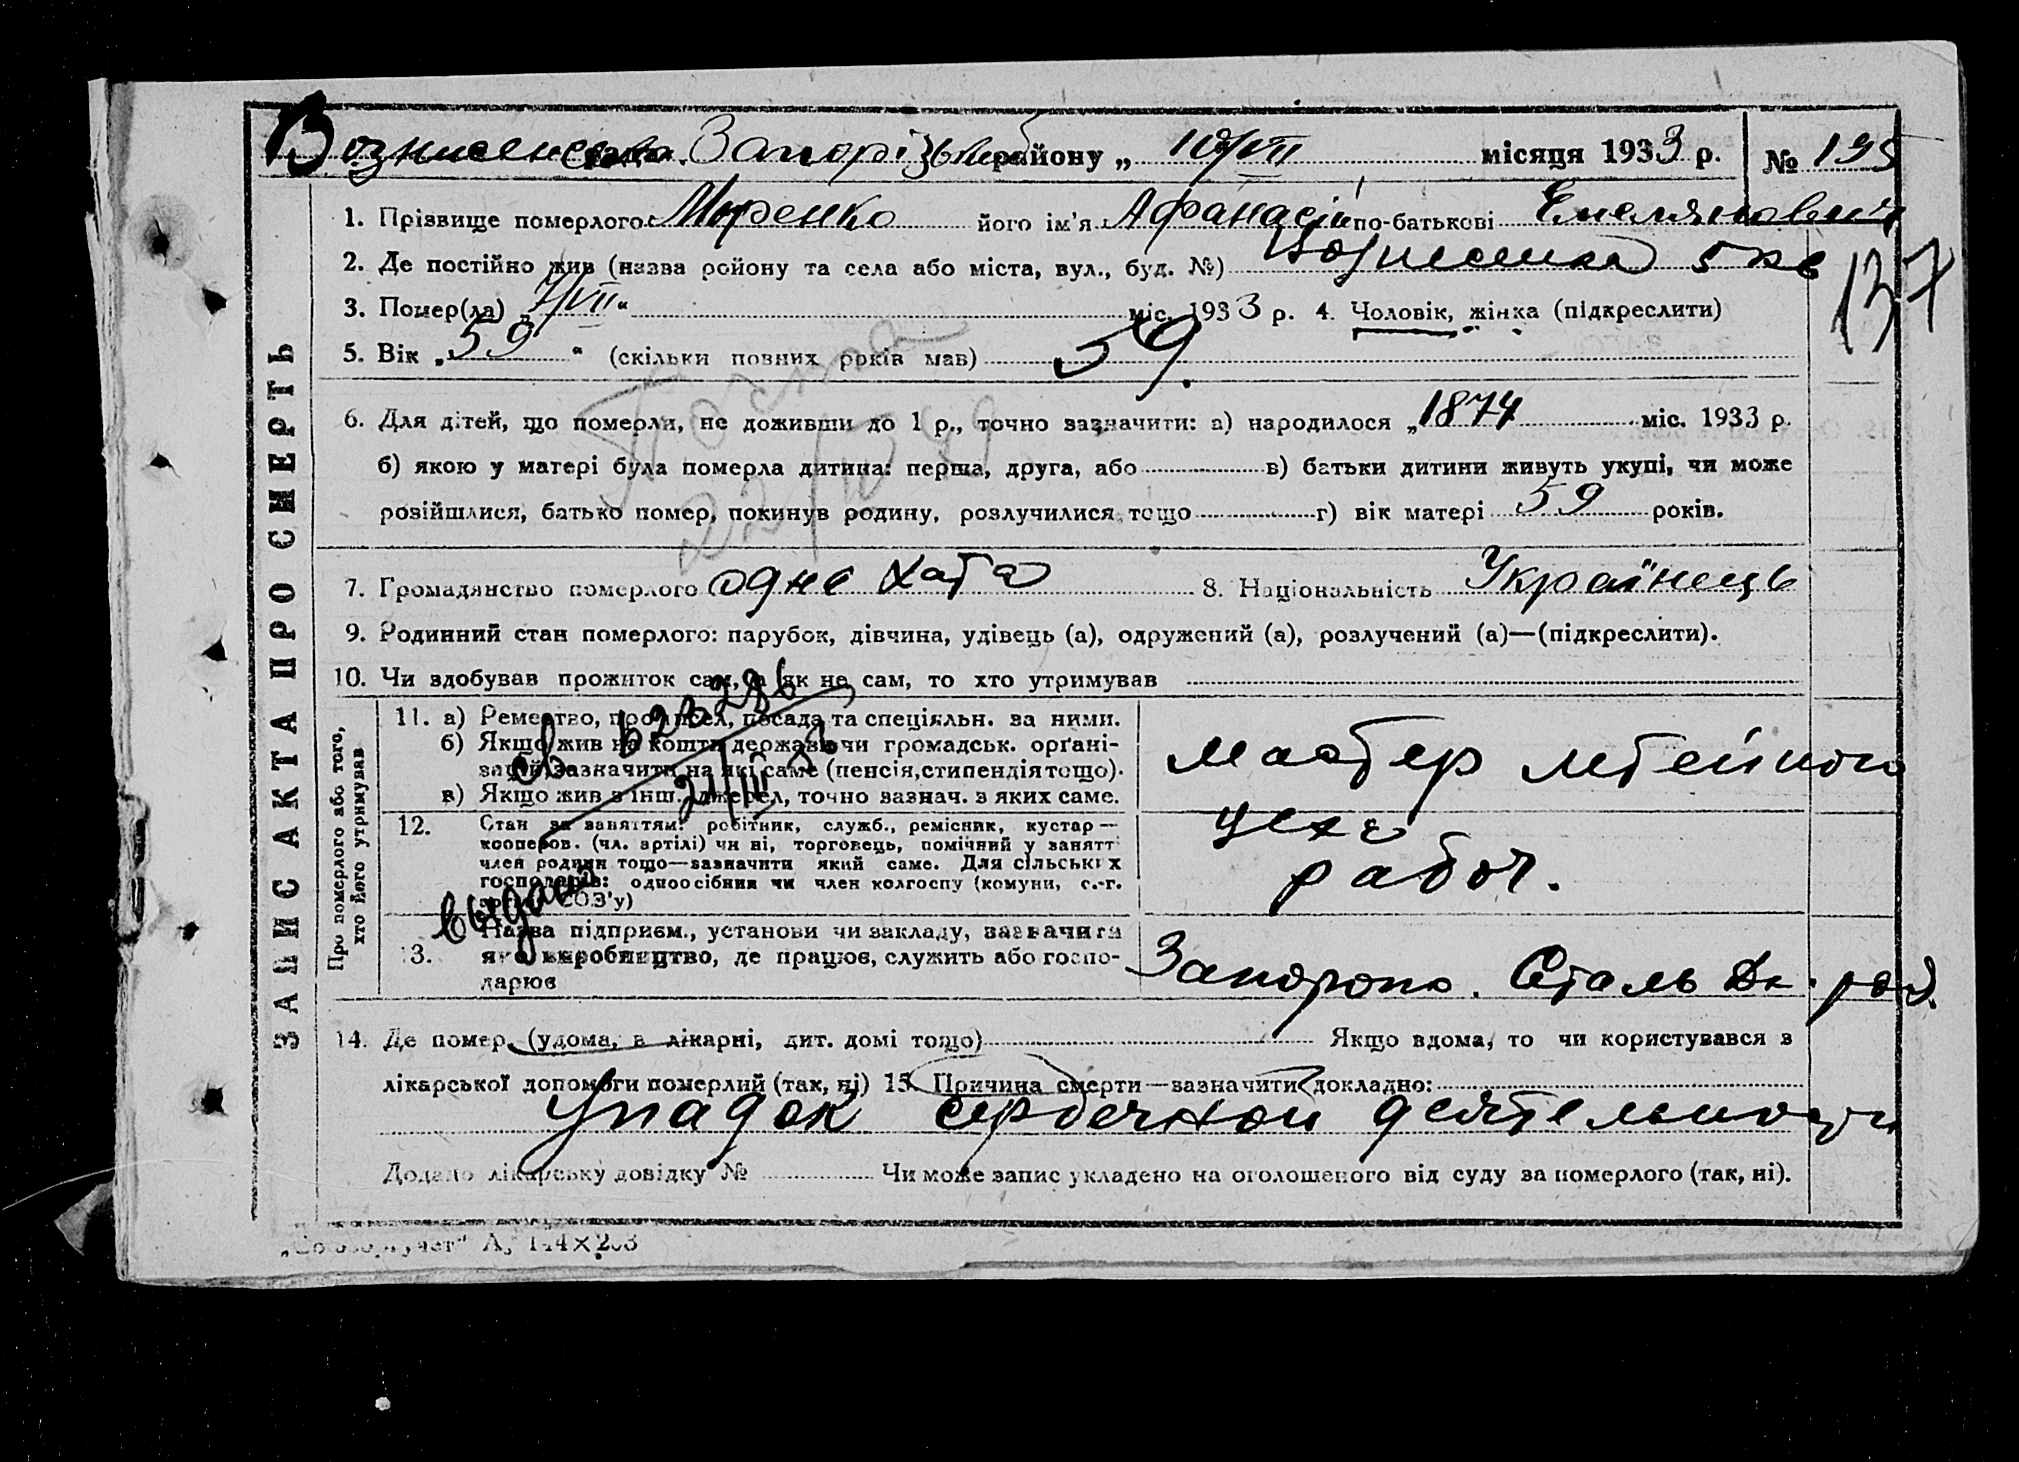 Вознисенська рада Запорізьк району „ 10/VII місяця 1933 р. № 195
1. Прізвище померлого Моренко його ім'я Афанасій по-батькові Емелянович
2. Де постійно жив (назва ройону та села або міста, вул., буд. №) Вознисенка 5
137
3. Помер(ла) „ 7/VII “ міс. 1933 р. 4. Чоловік, жінка (підкреслити)
5. Вік „ 59 “ (скільки повних років мав) 59.
6. Для дітей, що померли, не доживши до 1 р., точно зазначити: а) народилося „ 1874 міс. 1933 р.
б) якою у матері була померла дитина: перша, друга, або в) батьки дитини живуть укупі, чи може
розійшлися, батько помер, покинув родину, розлучилися тощо г) вік матері 59 років.
7. Громадянство померлого одна хата 8. Національність Українець
9. Родинний стан померлого: парубок, дівчина, удівець (а), одружений (а), розлучений (а)—(підкреслити).
10. Чи здобував прожиток сам, а як не сам, то хто утримував
ЗАПИС АКТА ПРО СМЕРТЬ
Про померлого або того, хто його утримував
11. а) Ремество, промисел, посада та спеціяльн. за ними.
б) Якщо жив на кошти держави чи громадськ. орґані-
зацій, зазначити на які саме (пенсія, стипендія тощо).
в) Якщо жив з інш. джерел, точно зазнач. з яких саме.
мастер литейного
цеха
12. Стан за заняттям: робітник, служб., ремісник, кустар—
кооперов. (чл. артілі) чи ні, торговець, помічний у занятті
член родини тощо—зазначити який саме. Для сільських
господарів: одноосібник чи член колгоспу (комуни, с.-г.
СОЗ'у)
рабоч.
13. Назва підприєм., установи чи закладу, зазначити
яке виробництво, де працює, служить або госпо-
дарює
Сталь
выдано
св. 623286
21/III
22/IV
14. Де помер (удома, в лікарні, дит. домі тощо) Якщо вдома, то чи користувався з
лікарської допомоги померлий (так, ні) 15. Причина смерти—зазначити докладно:
Упадок сердечной деятельности
Додано лікарську довідку № Чи може запис укладено на оголошеного від суду за померлого (так, ні).